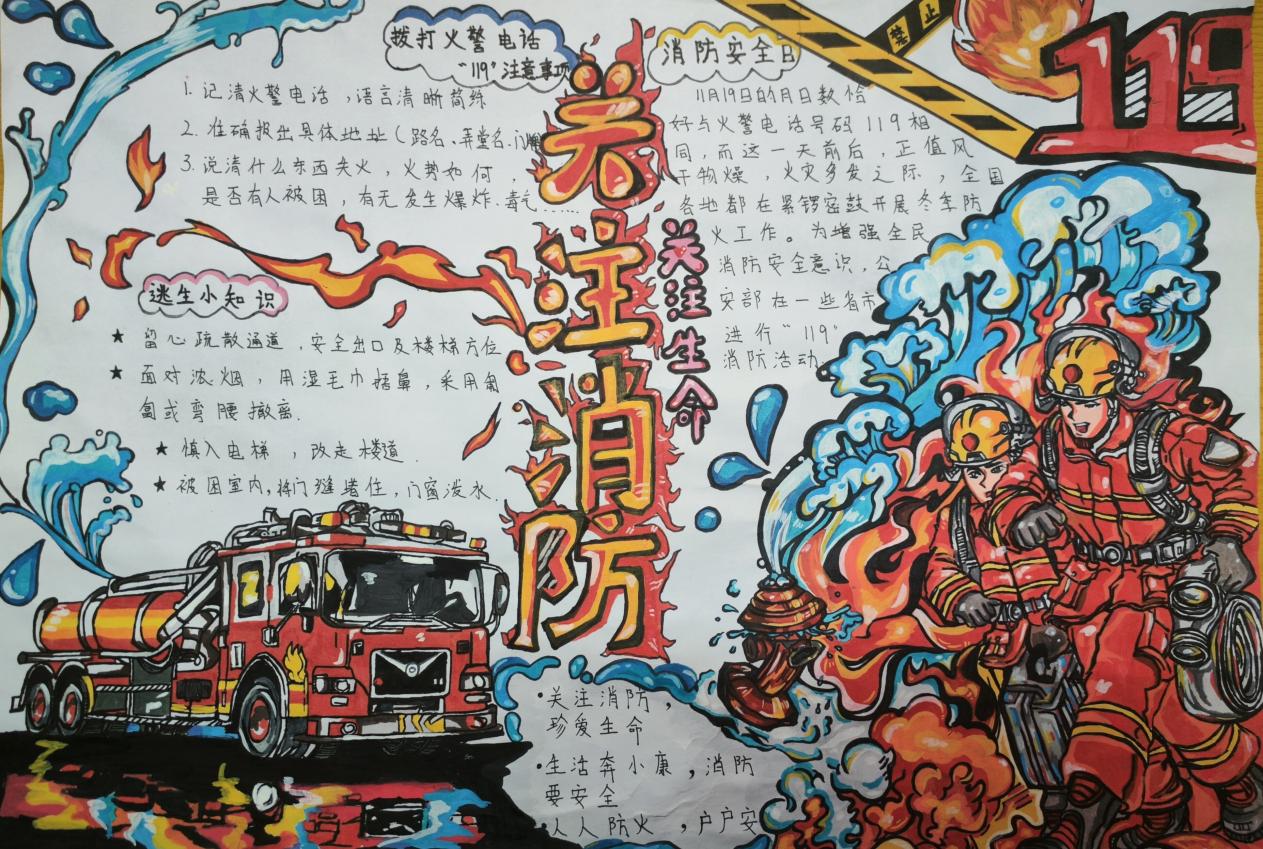 拨打火警电话
“119”注意事项
1. 记清火警电话，语言清晰简练
2. 准确报出具体地址（路名、弄堂名、门牌
3. 说清什么东西失火，火势如何，
是否有人被困，有无发生爆炸、毒气……
逃生小知识
★ 留心疏散通道，安全出口及楼梯方位
★ 面对浓烟，用湿毛巾捂鼻，采用匍
匐或弯腰撤离.
★ 慎入电梯，改走楼道.
★ 被困室内,将门缝堵住，门窗泼水.
关注消防
关注生命
消防安全日
11月19日的月日数恰
好与火警电话号码119相
同，而这一天前后，正值风
干物燥，火灾多发之际，全国
各地都在紧锣密鼓开展冬季防
火工作。为增强全民
消防安全意识，公
安部在一些省市
进行“119”
消防活动
禁止
119
·关注消防，
珍爱生命
·生活奔小康，消防
要安全
·人人防火，户户安